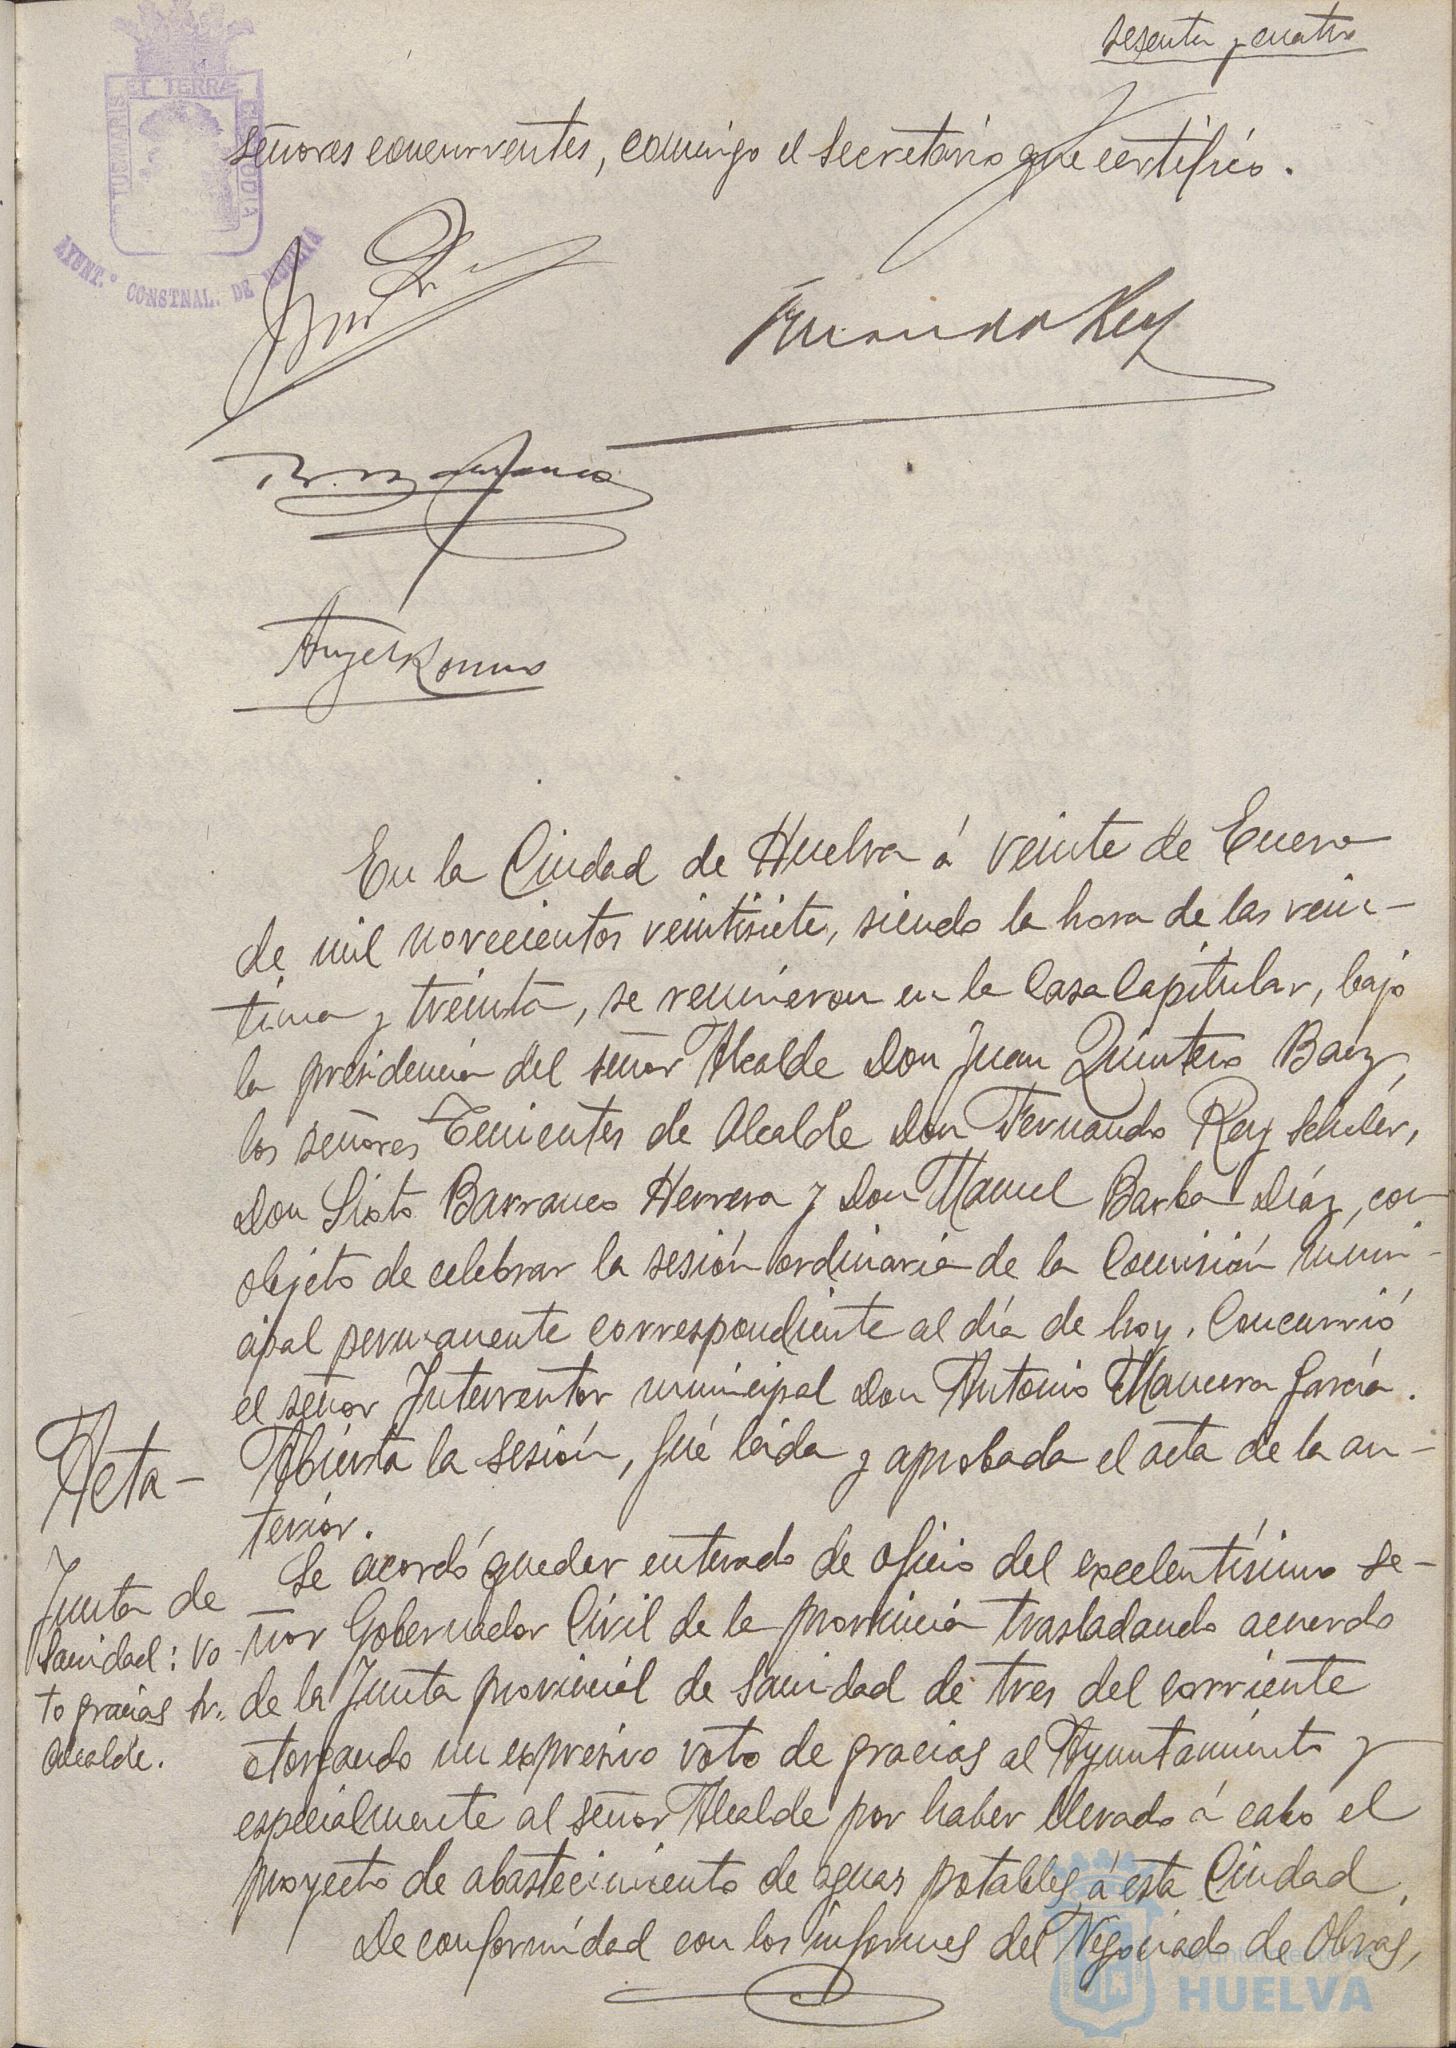 sesenta y cuatro
PORTUS MARIS ET TERRÆ CUSTODIA
AYUNT.º CONSTNAL. DE HUELVA
señores concurrentes, conmigo el Secretario que certifico.
Fernando Rey
Angel Romero
En la Ciudad de Huelva á veinte de Enero
de mil novecientos veintisiete, siendo la hora de las vein-
tiuna y treinta, se reunieron en la Casa Capitular, bajo
la presidencia del señor Alcalde Don Juan Quintero Baez,
los señores Tenientes de Alcalde Don Fernando Rey Schuler,
Don Sixto Barranco Herrera y Don Manuel Barba Díaz, con
objeto de celebrar la sesión ordinaria de la Comisión muni-
cipal permanente correspondiente al día de hoy. Concurrió
el señor Interventor municipal Don Antonio Mancera García.
Acta- Abierta la sesión, fué leida y aprobada el acta de la an-
terior.
Junta de
Sanidad: vo
to gracias Sr.
Alcalde.
Se acordó quedar enterado de oficio del excelentísimo se-
ñor Gobernador Civil de la provincia trasladando acuerdo
de la Junta provincial de Sanidad de tres del corriente
otorgando un expresivo voto de gracias al Ayuntamiento y
especialmente al señor Alcalde por haber llevado á cabo el
proyecto de abastecimiento de aguas potables á esta Ciudad.
De conformidad con los informes del Negociado de Obras,
Ayuntamiento de
HUELVA